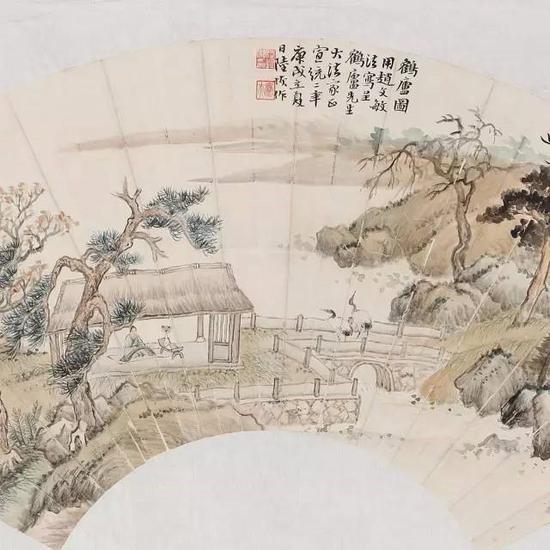 鶴廬圖
用趙文敏
法寫呈
鶴廬先生
大法家正
宣統二年
庚戌立夏
日陸恢作